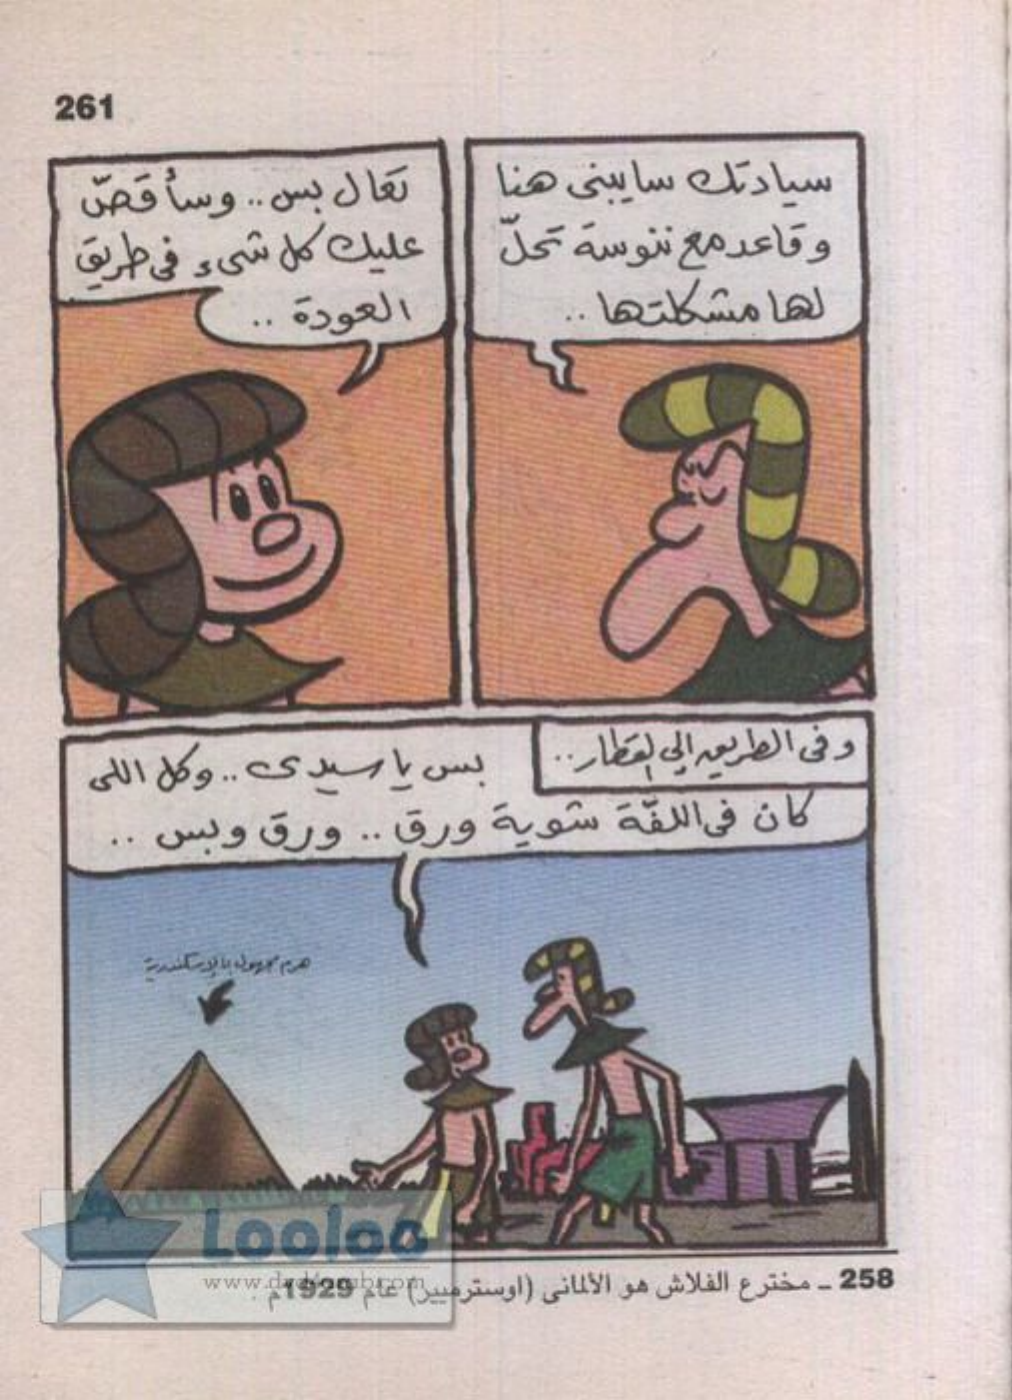 261
سيادتك سايبنى هنا
وقاعد مع ننوسة تحلّ
لها مشكلتها ..
تعال بس .. وسأقصّ
عليك كل شىء فى طريق
العودة ..
وفى الطريق إلى القطار ..
بس يا سيدى .. وكل اللى
كان فى اللفّة شوية ورق .. ورق وبس ..
هرم مجهول بالإسكندرية
258 ـ مخترع الفلاش هو الألمانى (اوسترميير) عام 1929م .
Looloo
www.dvd4arab.com